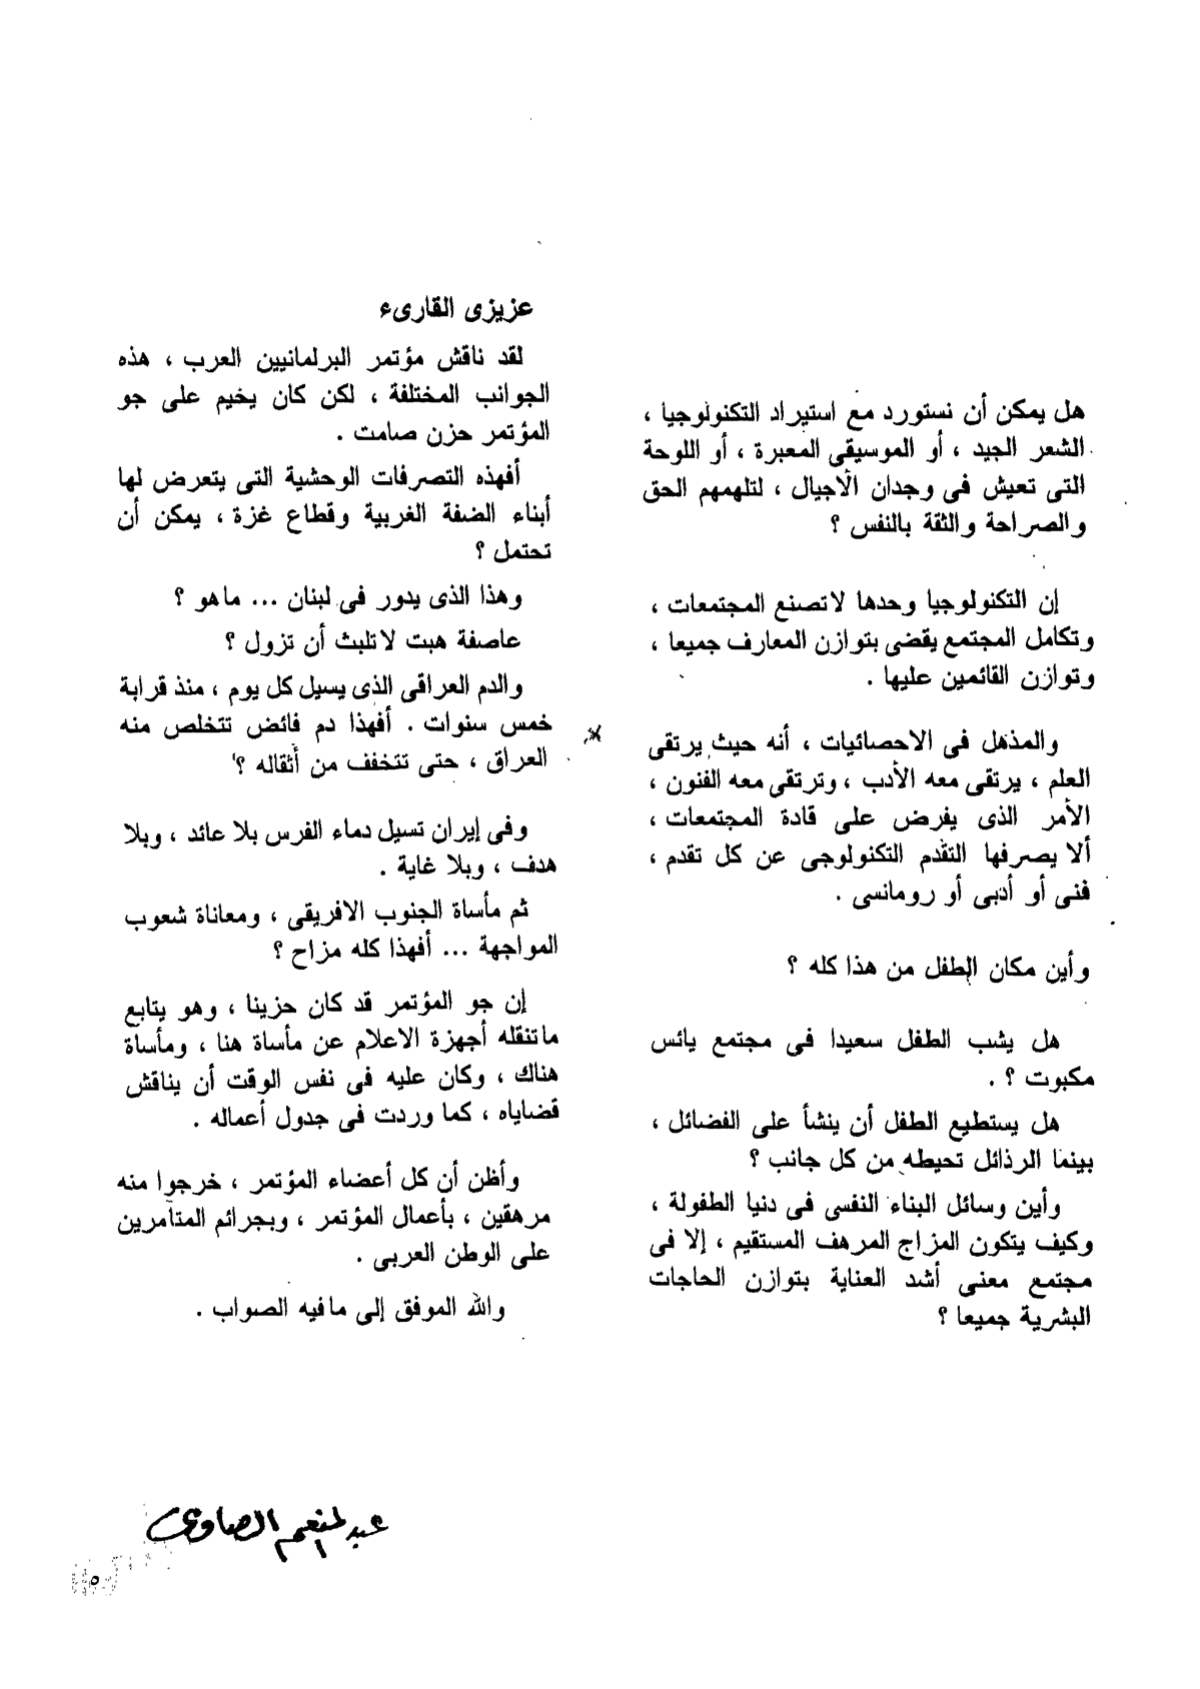 هل يمكن أن نستورد مع استيراد التكنولوجيا ،
الشعر الجيد ، أو الموسيقى المعبرة ، أو اللوحة
التى تعيش فى وجدان الأجيال ، لتلهمهم الحق
والصراحة والثقة بالنفس ؟
إن التكنولوجيا وحدها لاتصنع المجتمعات ،
وتكامل المجتمع يقضى بتوازن المعارف جميعا ،
وتوازن القائمين عليها .
والمذهل فى الاحصائيات ، أنه حيث يرتقى
العلم ، يرتقى معه الأدب ، وترتقى معه الفنون ،
الأمر الذى يفرض على قادة المجتمعات ،
ألا يصرفها التقدم التكنولوجى عن كل تقدم ،
فنى أو أدبى أو رومانسى .
وأين مكان الطفل من هذا كله ؟
هل يشب الطفل سعيدا فى مجتمع يائس
مكبوت ؟ .
هل يستطيع الطفل أن ينشأ على الفضائل ،
بينما الرذائل تحيطه من كل جانب ؟
وأين وسائل البناء النفسى فى دنيا الطفولة ،
وكيف يتكون المزاج المرهف المستقيم ، إلا فى
مجتمع معنى أشد العناية بتوازن الحاجات
البشرية جميعا ؟
عزيزى القارىء
لقد ناقش مؤتمر البرلمانيين العرب ، هذه
الجوانب المختلفة ، لكن كان يخيم على جو
المؤتمر حزن صامت .
أفهذه التصرفات الوحشية التى يتعرض لها
أبناء الضفة الغربية وقطاع غزة ، يمكن أن
تحتمل ؟
وهذا الذى يدور فى لبنان ... ماهو ؟
عاصفة هبت لاتلبث أن تزول ؟
والدم العراقى الذى يسيل كل يوم ، منذ قرابة
خمس سنوات . أفهذا دم فائض تتخلص منه
العراق ، حتى تتخفف من أثقاله ؟
وفى إيران تسيل دماء الفرس بلا عائد ، وبلا
هدف ، وبلا غاية .
ثم مأساة الجنوب الافريقى ، ومعاناة شعوب
المواجهة ... أفهذا كله مزاح ؟
إن جو المؤتمر قد كان حزينا ، وهو يتابع
ماتنقله أجهزة الاعلام عن مأساة هنا ، ومأساة
هناك ، وكان عليه فى نفس الوقت أن يناقش
قضاياه ، كما وردت فى جدول أعماله .
وأظن أن كل أعضاء المؤتمر ، خرجوا منه
مرهقين ، بأعمال المؤتمر ، وبجرائم المتآمرين
على الوطن العربى .
والله الموفق إلى مافيه الصواب .
عبد المنعم الصاوى
٥